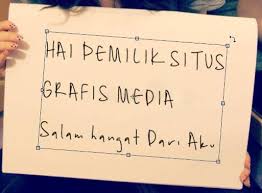 HAI PEMILIK SITUS
GRAFIS MEDIA
Salam hangat Dari Aku